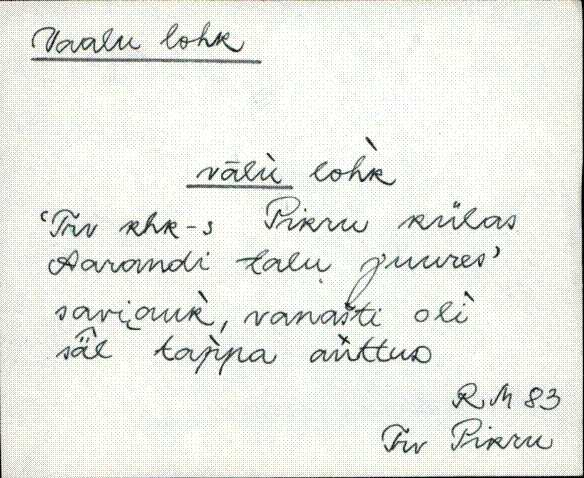 Vaalu lohk
vālù loh̀k
'Trv khk-s Pikru külas
Aarandi talu juures'
saviauk̀, vanašti olì
säl tap̀pa aüttus
R M 83
Trv Pikru